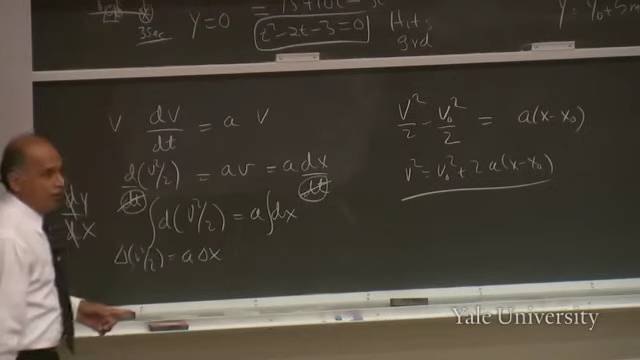 3sec
y=0
15+10t-5t²
t²-2t-3=0
Hits
grd
y = y₀+5m
v dv/dt = a v
d(v²/2)/dt = av = a dx/dt
∫d(v²/2) = a∫dx
Δ(v²/2) = a Δx
dy/dx
v²/2 - v₀²/2 = a(x-x₀)
v² = v₀² + 2a(x-x₀)
Yale University